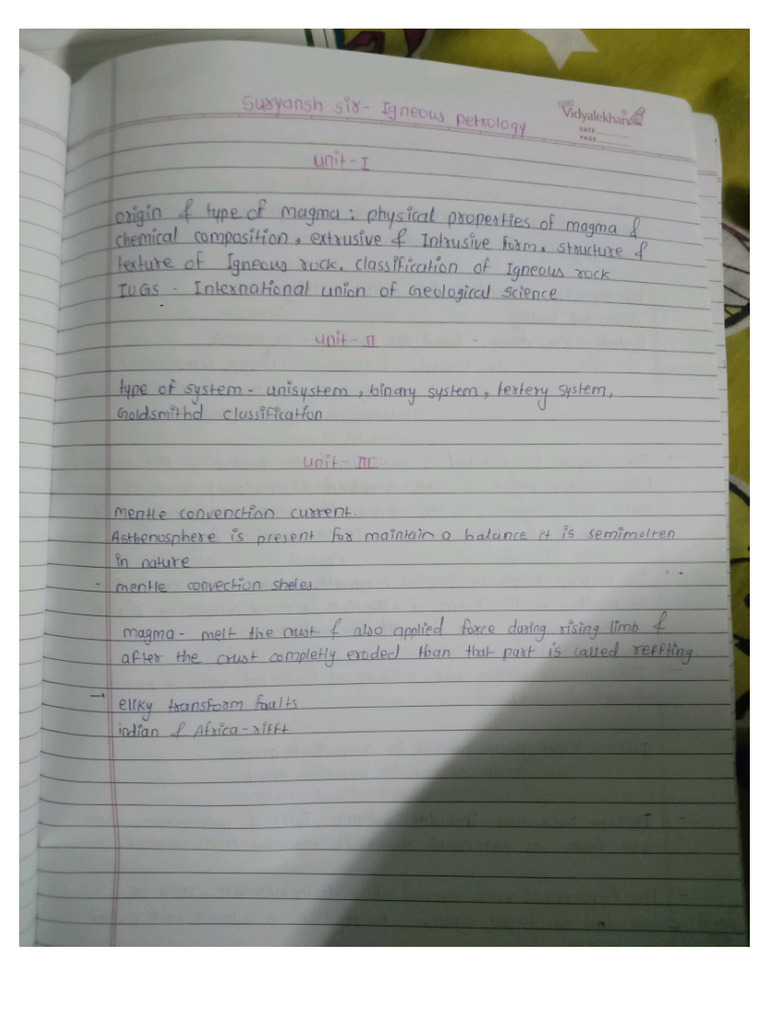 Suryansh sir - Igneous petrology
Vidyalekhan
DATE
PAGE
unit - I
origin & type of magma : physical properties of magma &
chemical composition, extrusive & Intrusive form, structure &
texture of Igneous rock, classification of Igneous rock
IUGS - International union of Geological science.
unit - II
type of system - unisystem, binary system, tertery system,
Goldsmithd classification
unit - III
mentle convenction current.
Asthenosphere is present for maintain a balance it is semimolten
in nature
- mentle convection sheles.
magma - melt the crust & also applied force during rising limb &
after the crust completly eroded than that part is called reffting.
→ ellky transform faults
indian & Africa - rifft